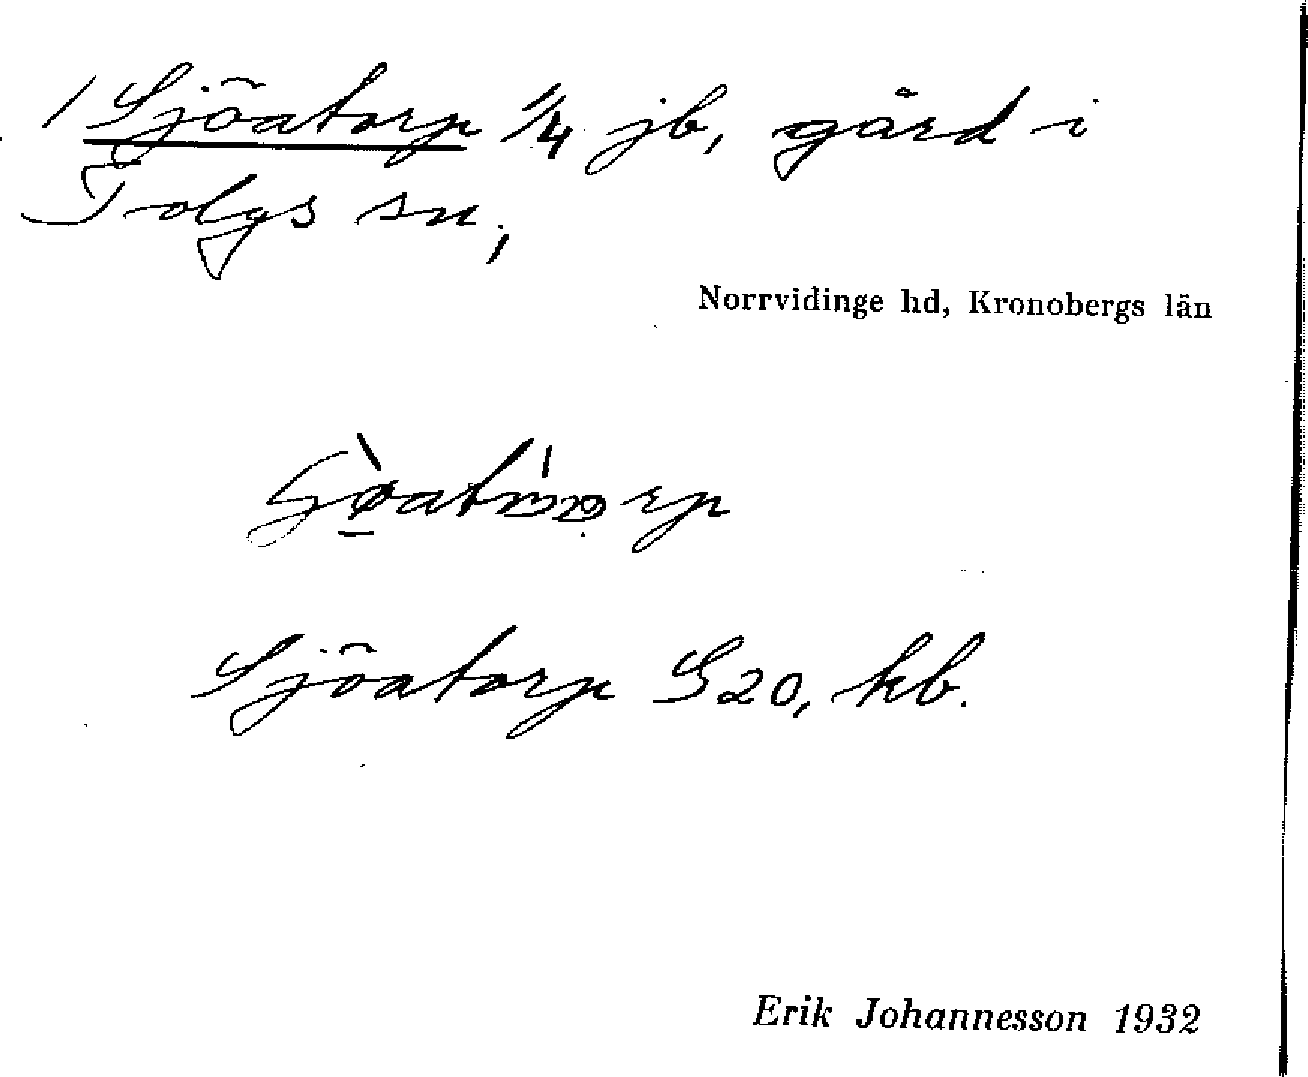 1 Sjöatorp 1/4 jb, gård i
Tolgs sn,
Norrvidinge hd, Kronobergs län
Sjöatorp S20, kb.
Erik Johannesson 1932